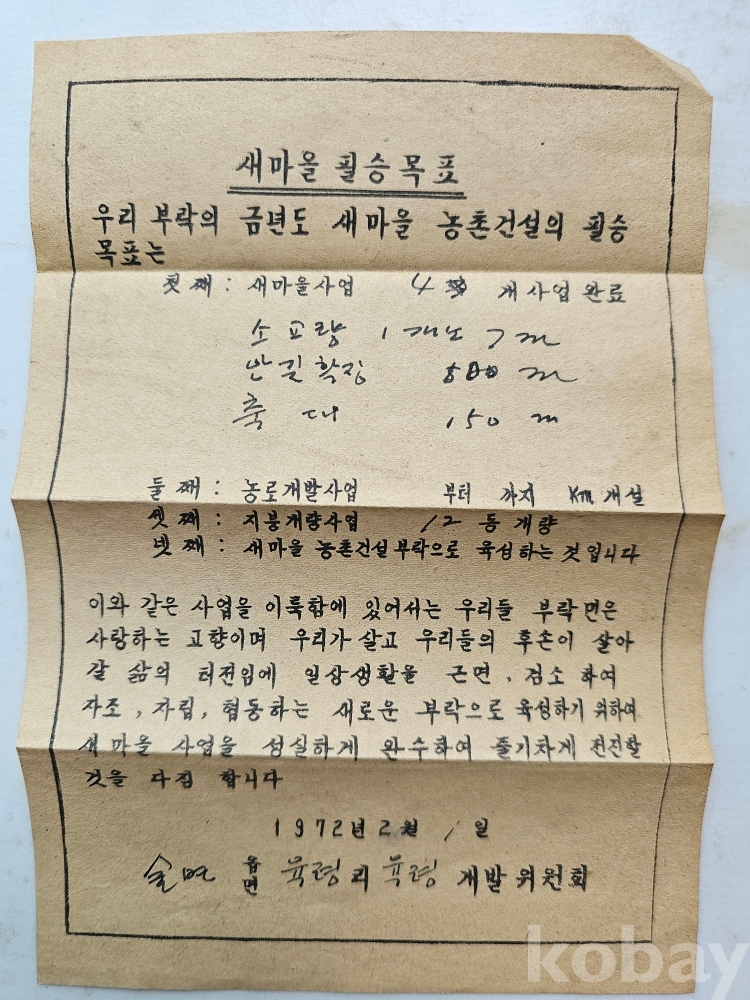 새마을 필승목표
우리 부락의 금년도 새마을 농촌건설의 필승
목표는
첫째 : 새마을사업 4 개사업완료
소교량 1개소 7m
안길확장 500m
축대 150m
둘째 : 농로개발사업 부터 까지 Km개설
셋째 : 지붕개량사업 12동개량
넷째 : 새마을 농촌건설부락으로 육성하는 것입니다
이와 같은 사업을 이룩함에 있어서는 우리들 부락면은
사랑하는 고향이며 우리가 살고 우리들의 후손이 살아
갈 삶의 터전임에 일상생활을 근면, 검소 하여
자조, 자립, 협동하는 새로운 부락으로 육성하기 위하여
새마을 사업을 성실하게 완수하여 줄기차게 전진할
것을 다짐 합니다
1972년 2월 1일
읍
면 육령리 육령 개발위원회
kobay